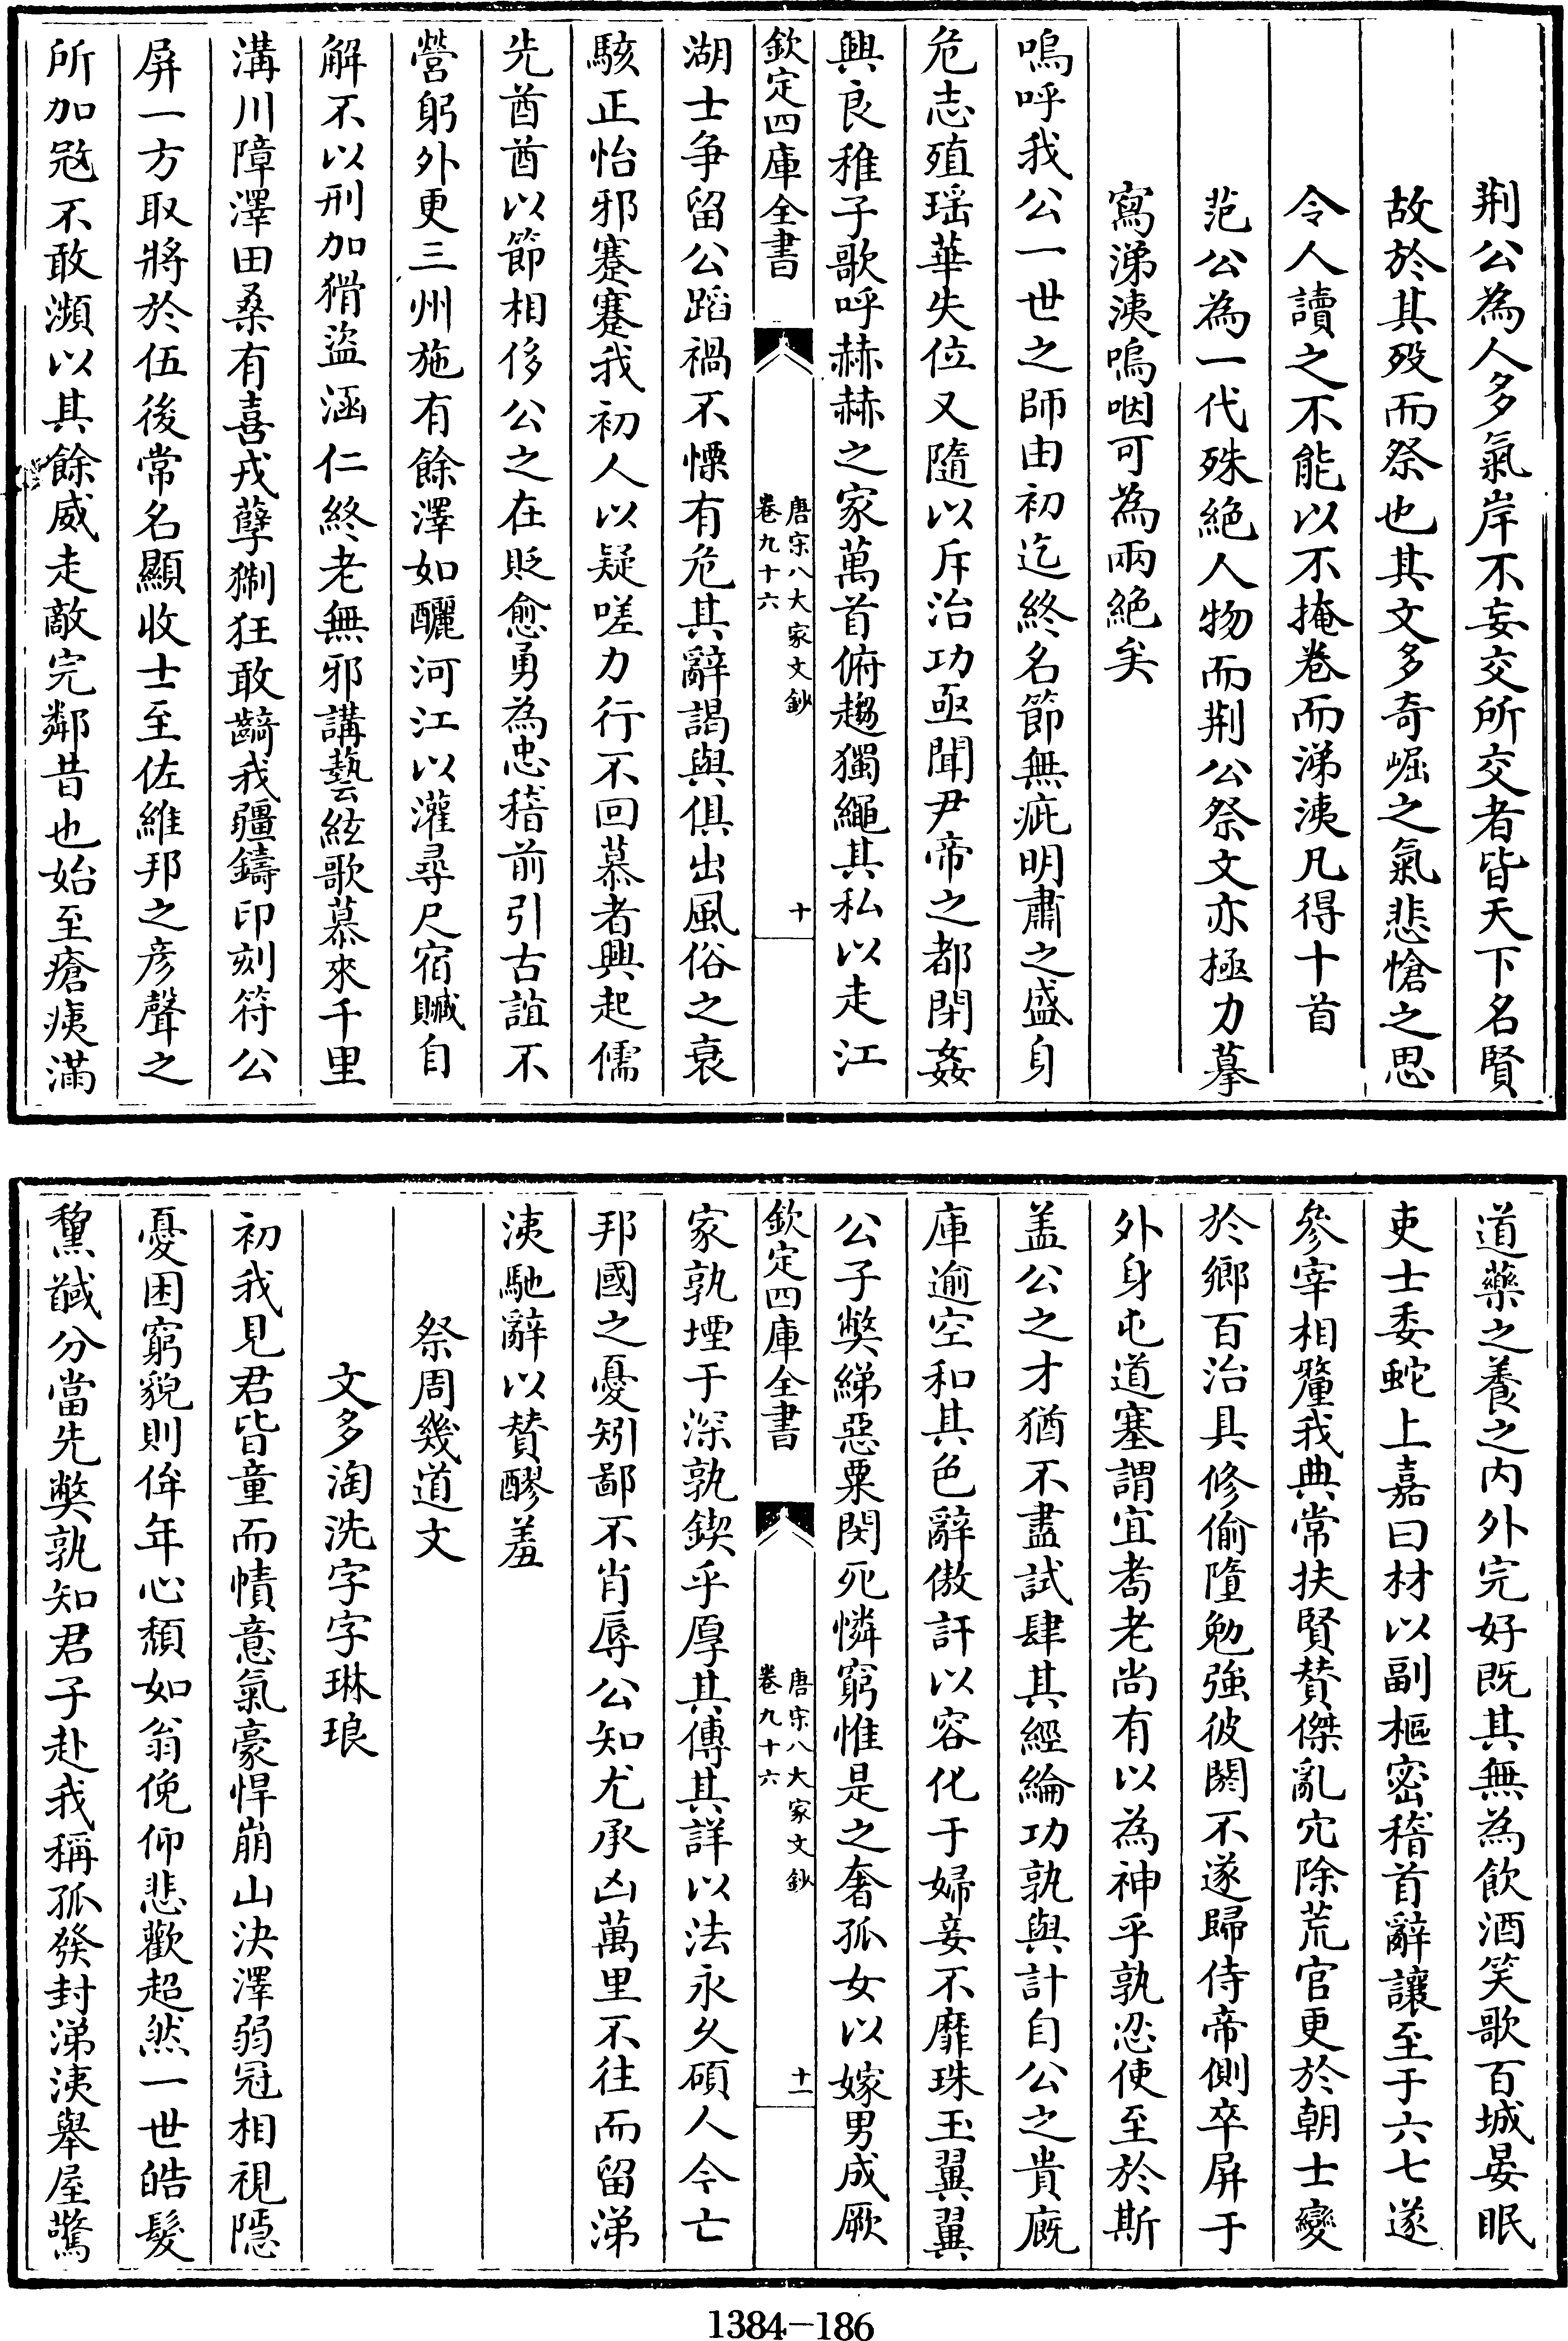 荆公為人多氣岸不妄交所交者皆天下名賢
故於其殁而祭也其文多奇崛之氣悲愴之思
令人讀之不能以不掩卷而涕洟凡得十首
范公為一代殊絶人物而荆公祭文亦極力摹
寫涕洟嗚咽可為兩絶矣
嗚呼我公一世之師由初迄終名節無疵明肅之盛身
危志殖瑶華失位又隨以斥治功亟聞尹帝之都閉姦
興良稚子歌呼赫赫之家萬首俯趨獨繩其私以走江
欽定四庫全書
唐宋八大家文鈔
卷九十六
十
湖士争留公蹈禍不慄有危其辭謁與俱出風俗之衰
駭正怡邪蹇蹇我初人以疑嗟力行不回慕者興起儒
先酋酋以節相侈公之在貶愈勇為忠稽前引古誼不
營躬外更三州施有餘澤如釃河江以灌尋尺宿贓自
解不以刑加猾盜涵仁終老無邪講藝絃歌慕來千里
溝川障澤田桑有喜戎孽猘狂敢齮我疆鑄印刻符公
屏一方取將於伍後常名顯收士至佐維邦之彦聲之
所加虣不敢瀕以其餘威走敵完鄰昔也始至瘡痍滿
道藥之養之内外完好既其無為飲酒笑歌百城晏眠
吏士委蛇上嘉曰材以副樞密稽首辭讓至于六七遂
參宰相釐我典常扶賢賛傑亂宂除荒官更於朝士變
於鄉百治具修偷墮勉強彼閼不遂歸侍帝側卒屏于
外身屯道塞謂宜耉老尚有以為神乎孰忍使至於斯
盖公之才猶不盡試肆其經綸功孰與計自公之貴廐
庫逾空和其色辭傲訐以容化于婦妾不靡珠玉翼翼
公子弊綈惡粟閔死憐窮惟是之奢孤女以嫁男成厥
欽定四庫全書
唐宋八大家文鈔
卷九十六
十一
家孰堙于深孰鍥乎厚其傳其詳以法永久碩人今亡
邦國之憂矧鄙不肖辱公知尤承凶萬里不往而留涕
洟馳辭以賛醪羞
祭周幾道文
文多淘洗字字琳琅
初我見君皆童而幘意氣豪悍崩山决澤弱冠相視隱
憂困窮貌則侔年心頽如翁俛仰悲歡超然一世皓髮
黧馘分當先弊孰知君子赴我稱孤發封涕洟舉屋驚
1384-186